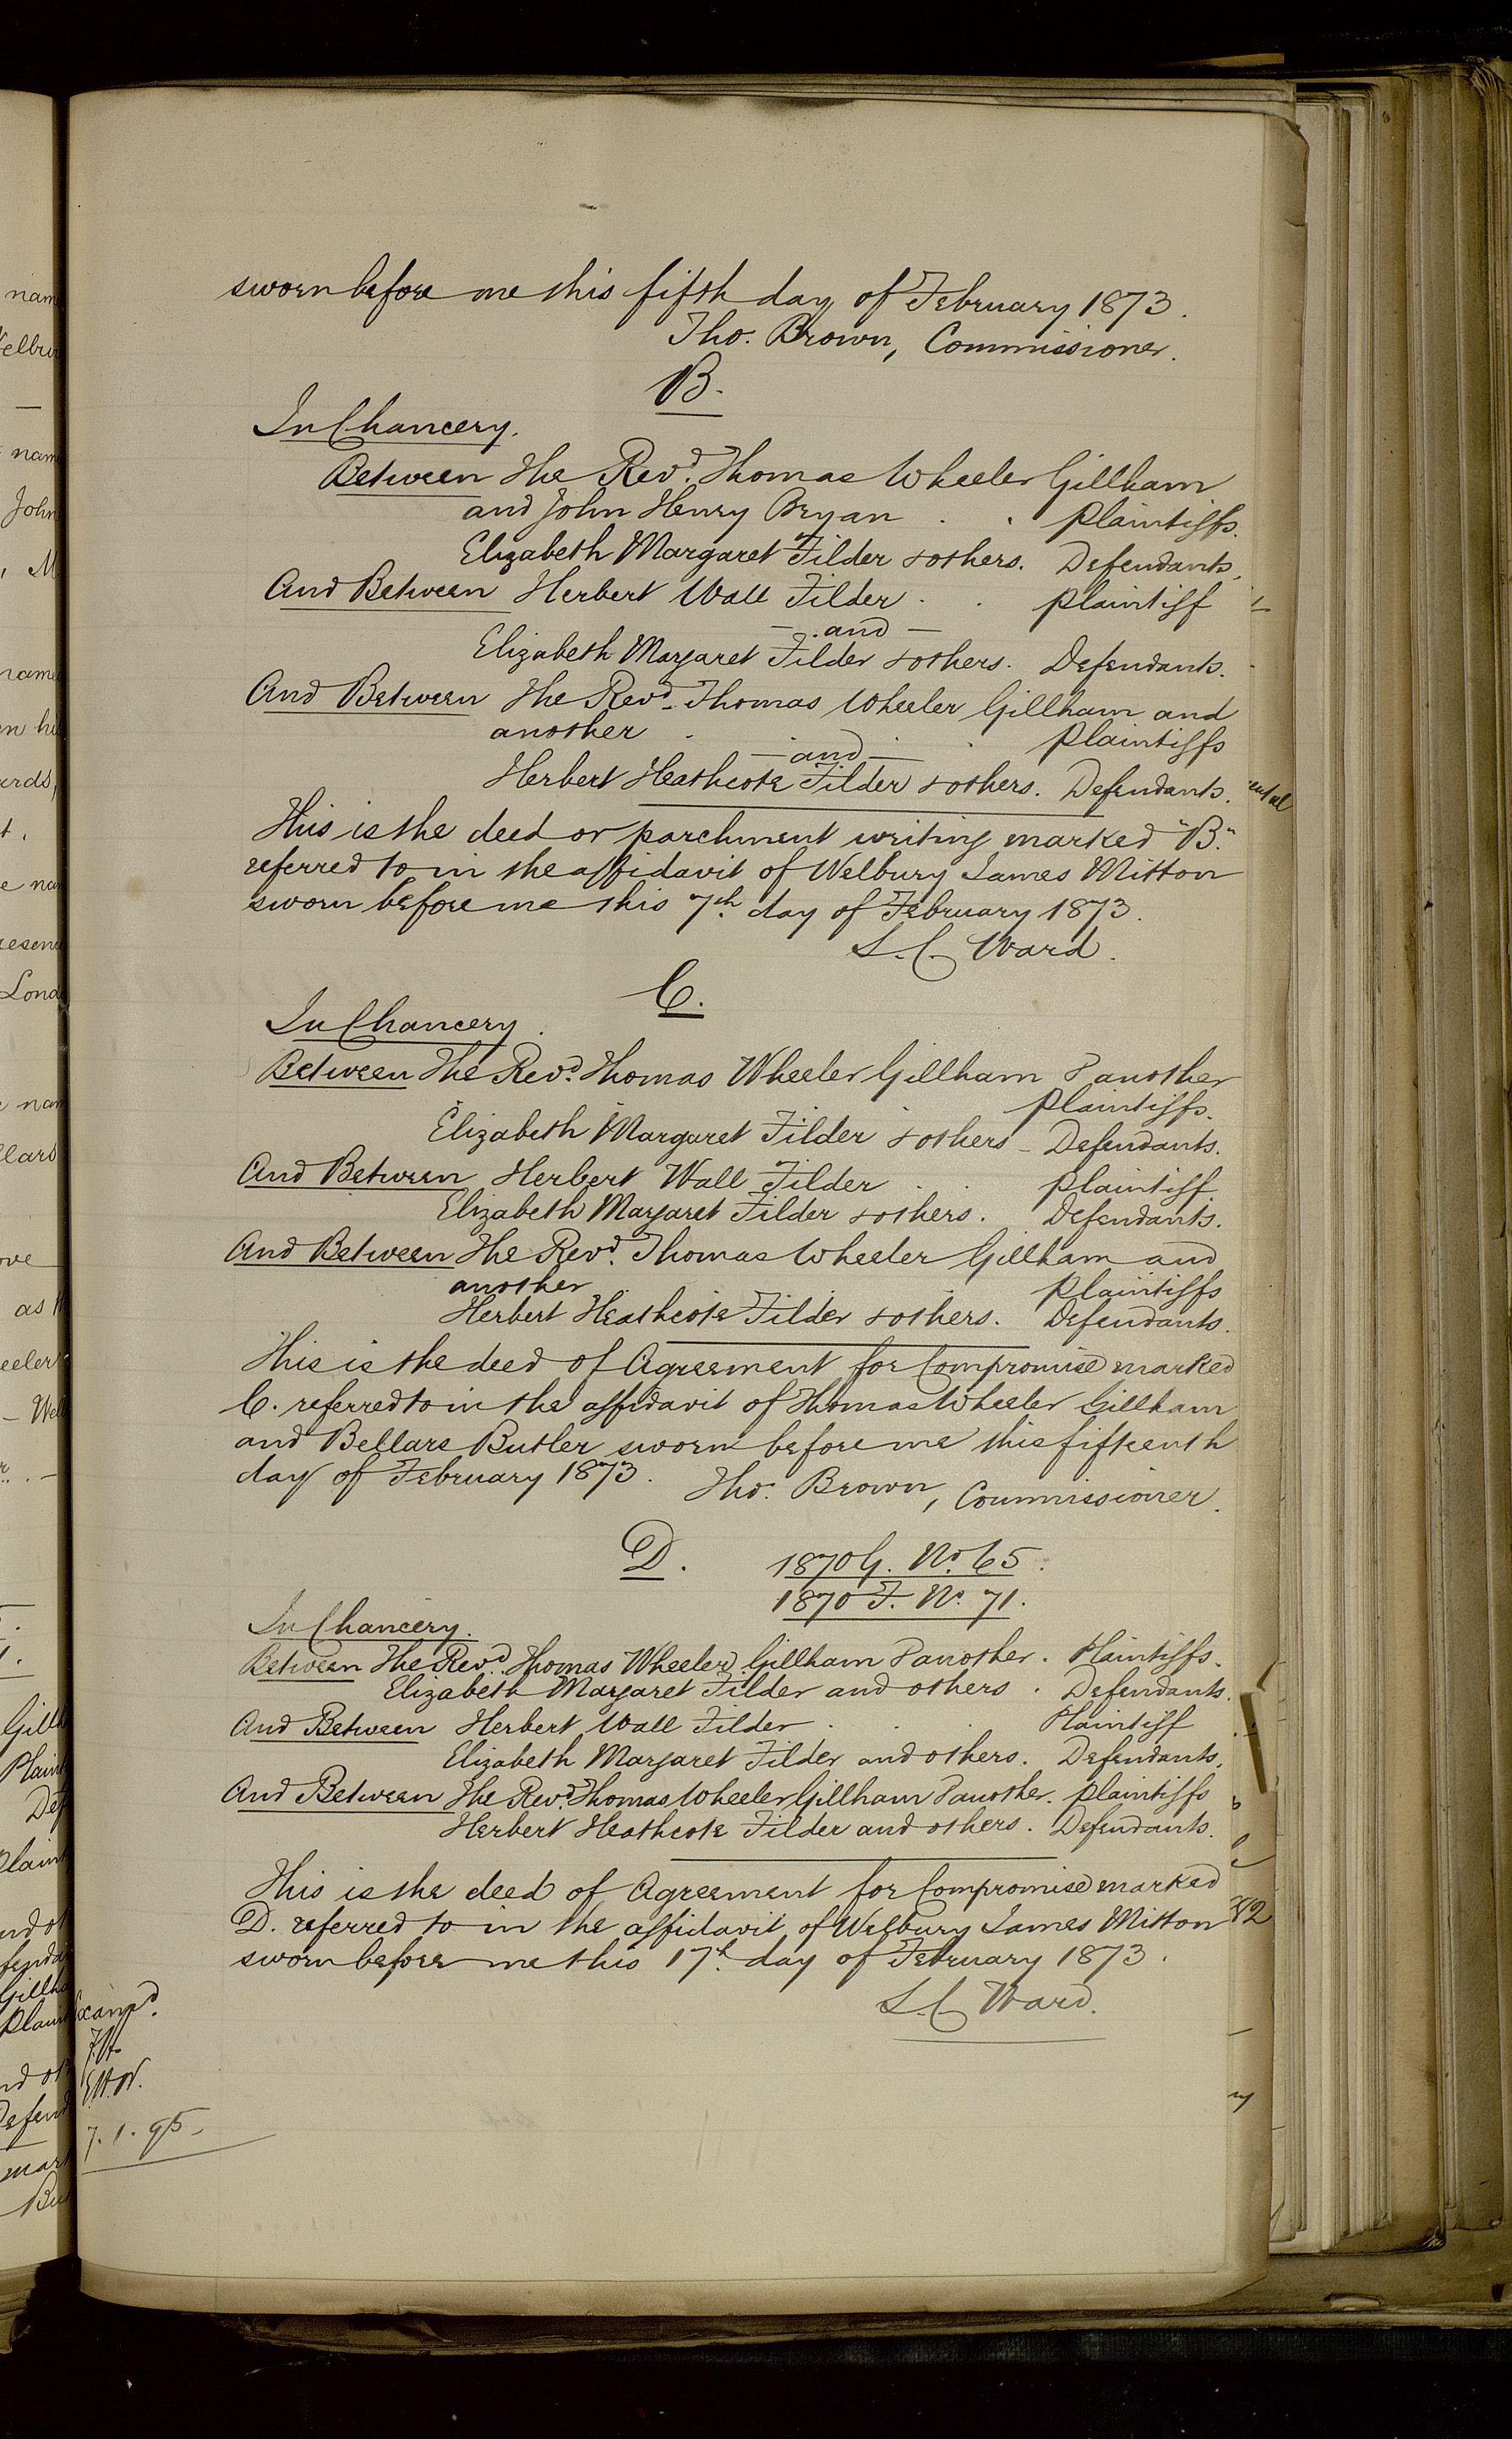 sworn before me this fifth day of February 1873.
Tho. Brown, Commissioner.
B.
In Chancery.
Between The Revd. Thomas Wheeler Gillham
and John Henry Bryan . . Plaintiffs.
Elizabeth Margaret Filder & others. Defendants.
And Between Herbert Wall Filder . . Plaintiff
— and —
Elizabeth Margaret Filder & others. Defendants.
And Between The Revd. Thomas Wheeler Gillham and
another . . . Plaintiffs
— and —
Herbert Heathcote Filder & others. Defendants.
This is the deed or parchment writing marked "B."
referred to in the affidavit of Welbury James Mitton
sworn before me this 7th day of February 1873.
S. C. Ward.
C.
In Chancery.
Between The Revd. Thomas Wheeler Gillham & another
Plaintiffs.
Elizabeth Margaret Filder & others – Defendants.
And Between Herbert Wall Filder . . Plaintiff.
Elizabeth Margaret Filder & others. Defendants.
And Between The Revd. Thomas Wheeler Gillham and
another . . Plaintiffs
Herbert Heathcote Filder & others. Defendants.
This is the deed of Agreement for Compromise marked
C. referred to in the affidavit of Thomas Wheeler Gillham
and Bellars Butler sworn before me this fifteenth
day of February 1873. Tho. Brown, Commissioner.
D. 1870 G. No. 65.
1870 F. No. 71.
In Chancery.
Between The Revd. Thomas Wheeler Gillham & another. Plaintiffs.
Elizabeth Margaret Filder and others. Defendants.
And Between Herbert Wall Filder . . . Plaintiff
Elizabeth Margaret Filder and others. Defendants.
And Between The Revd. Thomas Wheeler Gillham & another. Plaintiffs
Herbert Heathcote Filder and others. Defendants.
This is the deed of Agreement for Compromise marked
D. referred to in the affidavit of Welbury James Mitton
sworn before me this 17th day of February 1873.
S. C. Ward.
Examd.
7. 1. 95.